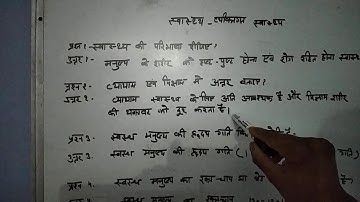 स्वास्थ्य - व्यक्तिगत स्वास्थ्य
प्रश्न 1.- स्वास्थ्य की परिभाषा दीजिए?
उत्तर 1.- मनुष्य के शरीर को हष्ट-पुष्ट होना एवं रोग रहित होना स्वास्थ्य
प्रश्न 2.- व्यायाम एवं विश्राम में अन्तर बताए?
उत्तर 2.- व्यायाम स्वास्थ्य के लिए अति आवश्यक है और विश्राम शरीर
की थकावट को दूर करता है।
प्रश्न 3.- स्वस्थ मनुष्य की हृदय गति
उत्तर 3.- स्वस्थ मनुष्य की हृदय गति (
प्रश्न 4. स्वस्थ मनुष्य का रक्त-चाप
उत्तर 4. स्वस्थ मनुष्य का